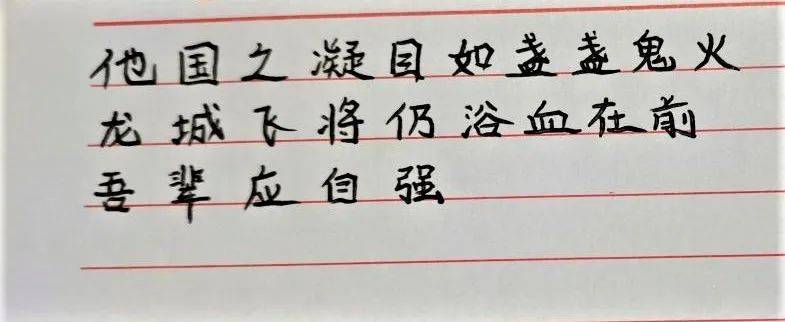 他国之凝目如盏盏鬼火
龙城飞将仍浴血在前
吾辈应自强